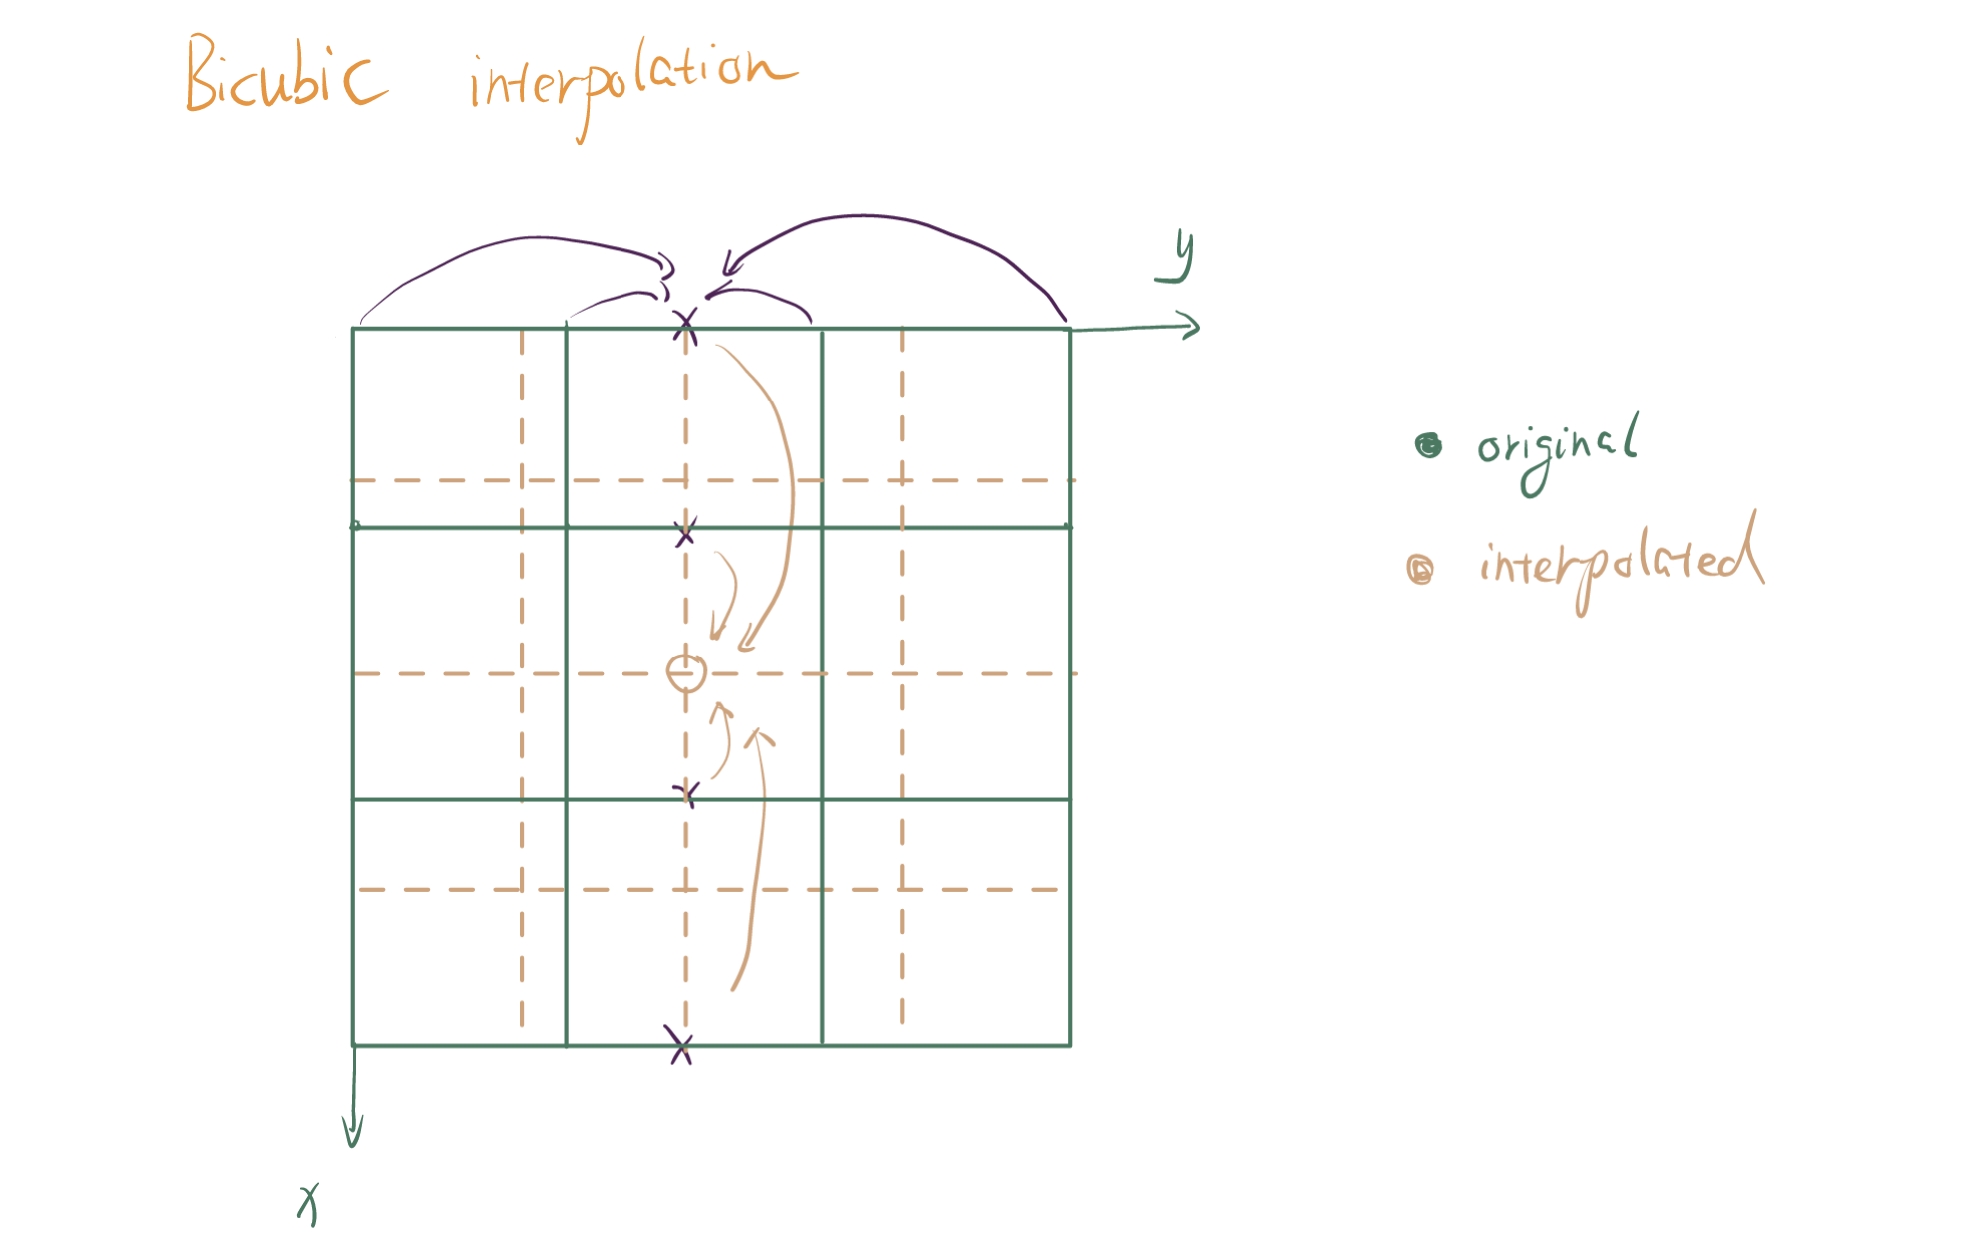 Bicubic interpolation
y
original
interpolated
x